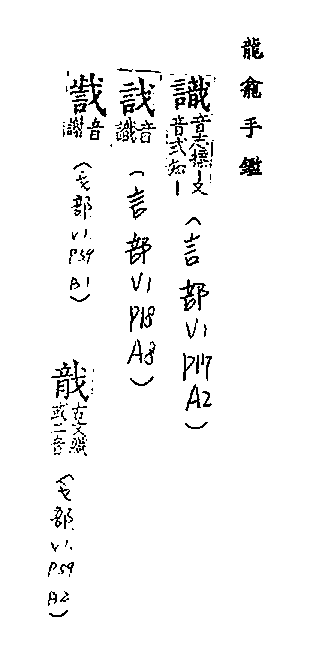 龍龕手鑑
識 音志標—文
音式知—
（言部
V1
P17
A2）
音
識
（言部
V1
P18
A8）
音
謝
（戈部
V1.
P59
A1）
古文職
或二音
（戈部
V1.
P59
A2）